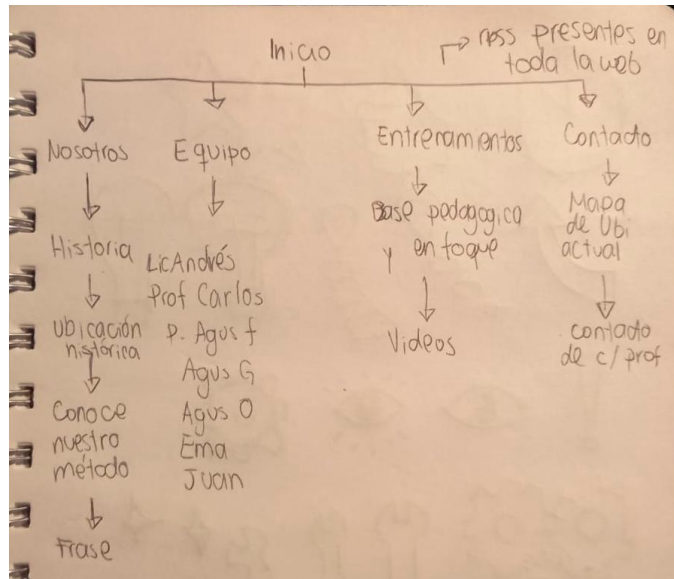 Inicio
rrss presentes en
toda la web
Nosotros
Historia
Ubicación
histórica
Conoce
nuestro
método
Frase
Equipo
Lic Andrés
Prof Carlos
P. Agus f
Agus G
Agus O
Ema
Juan
Entrenamientos
Base pedagogica
y enfoque
Videos
Contacto
Mapa
de Ubi
actual
contacto
de c/prof